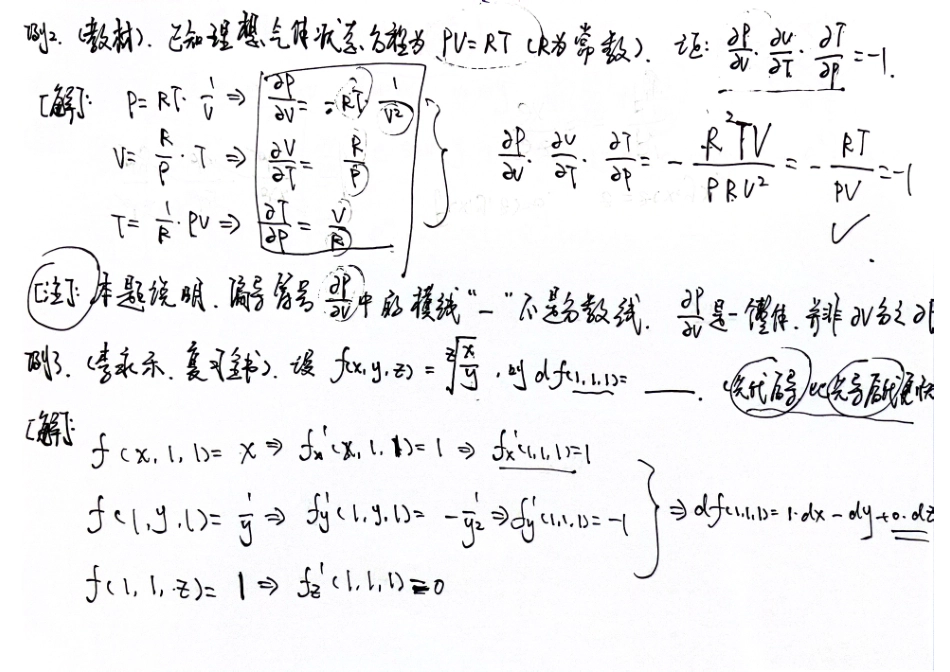 例2. (教材). 已知理想气体状态方程为 PV=RT (R为常数). 证: ∂P/∂V · ∂V/∂T · ∂T/∂P = -1.
[解]: P=RT·1/V ⇒ ∂P/∂V = -RT·1/V²
V=R/P·T ⇒ ∂V/∂T = R/P
T=1/R·PV ⇒ ∂T/∂P = V/R
∂P/∂V · ∂V/∂T · ∂T/∂P = -R²TV/PRV² = -RT/PV = -1 ✓
[注]: 本题说明, 偏导符号 ∂P/∂V 中的横线“—”不是分数线. ∂P/∂V 是一整体, 并非 ∂V分之∂P
例3. (李永乐. 复习全书). 设 f(x,y,z) = ᶻ√(x/y), 则 df(1,1,1)= ____. (先代后导)比(先导后代)更快
[解]:
f(x,1,1)=x ⇒ fx'(x,1,1)=1 ⇒ fx'(1,1,1)=1
f(1,y,1)=1/y ⇒ fy'(1,y,1)=-1/y² ⇒ fy'(1,1,1)=-1
⇒ df(1,1,1)=1·dx-dy+0·dz
f(1,1,z)=1 ⇒ fz'(1,1,1)=0